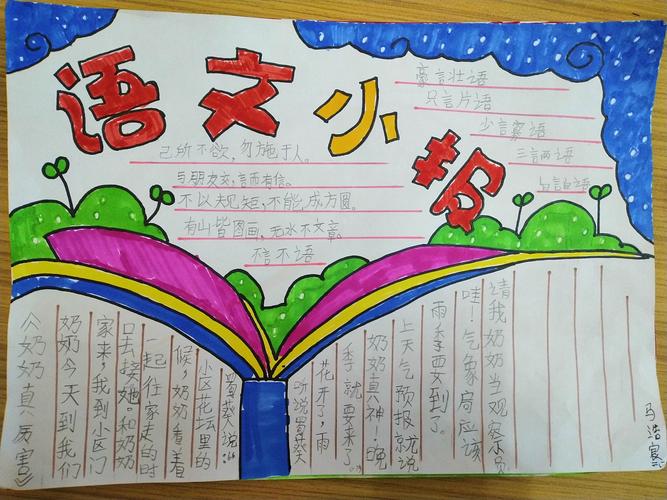 语文小报
豪言壮语
只言片语
少言寡语
三言两语
自言自语
己所不欲,勿施于人。
与朋友交,言而有信。
不以规矩,不能,成方圆。
有山皆图画,无水不文章。
不言不语
《奶奶真厉害》
奶奶今天到我们
家来,我到小区门
口去接她。和奶奶
一起往家走的时
候,奶奶看着
小区花坛里的
蜀葵说:“
听说蜀葵
花开了,雨
季就要来了。”
奶奶真神!晚
上天气预报就说
雨季要到了。
哇!气象局应该
请我奶奶当观察员